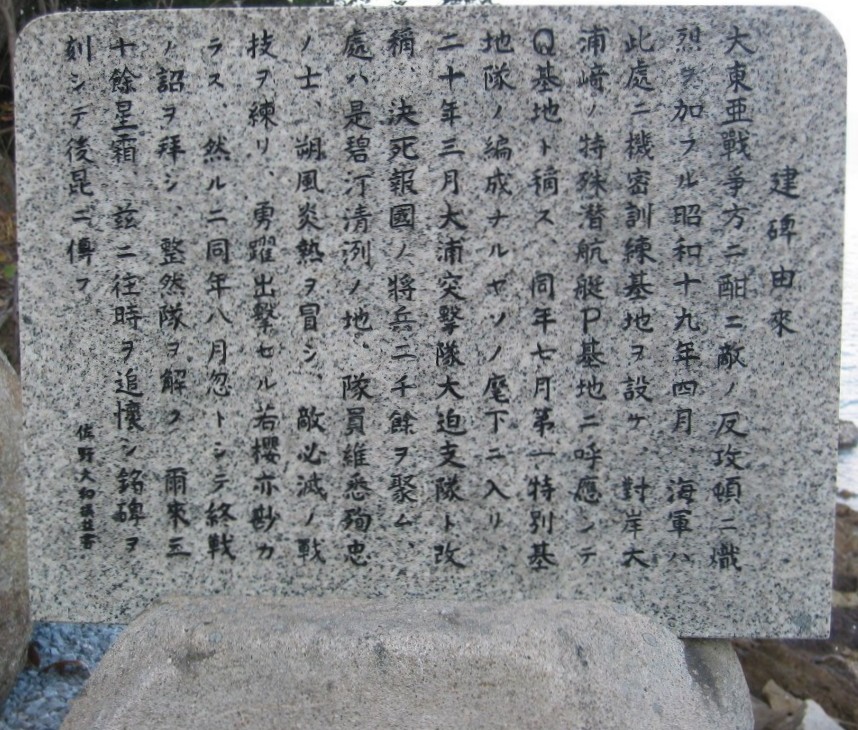 建碑由來
大東亜戰爭方ニ酣ニ敵ノ反攻頓ニ熾
烈ヲ加フル昭和十九年四月、海軍ハ
此處ニ機密訓練基地ヲ設ケ、對岸大
浦﨑ノ特殊潜航艇P基地ニ呼應シテ
Q基地ト稱ス、同年七月第一特別基
地隊ノ編成ナルヤソノ麾下ニ入リ、
二十年三月大浦突撃隊大迫支隊ト改
稱、決死報國ノ將兵二千餘ヲ聚ム、
處ハ是碧汀清冽ノ地、隊員維悉殉忠
ノ士、朔風炎熱ヲ冒シ、敵必滅ノ戰
技ヲ練リ、勇躍出撃セル若櫻亦尠カ
ラス、然ルニ同年八月忽トシテ終戰
ノ詔ヲ拜シ、整然隊ヲ解ク、爾來五
十餘星霜、茲ニ往時ヲ追懷シ銘碑ヲ
刻シテ後昆ニ傳フ
佐野大和撰並書